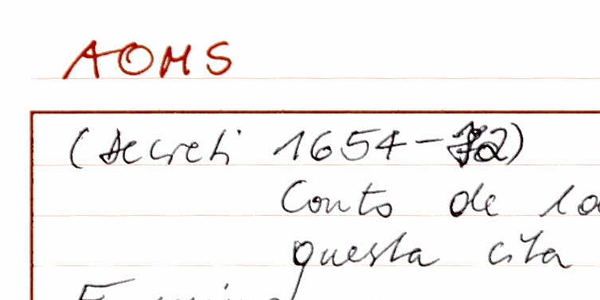 AOMS
(Decreti 1654-72)
Conto de
questa cita